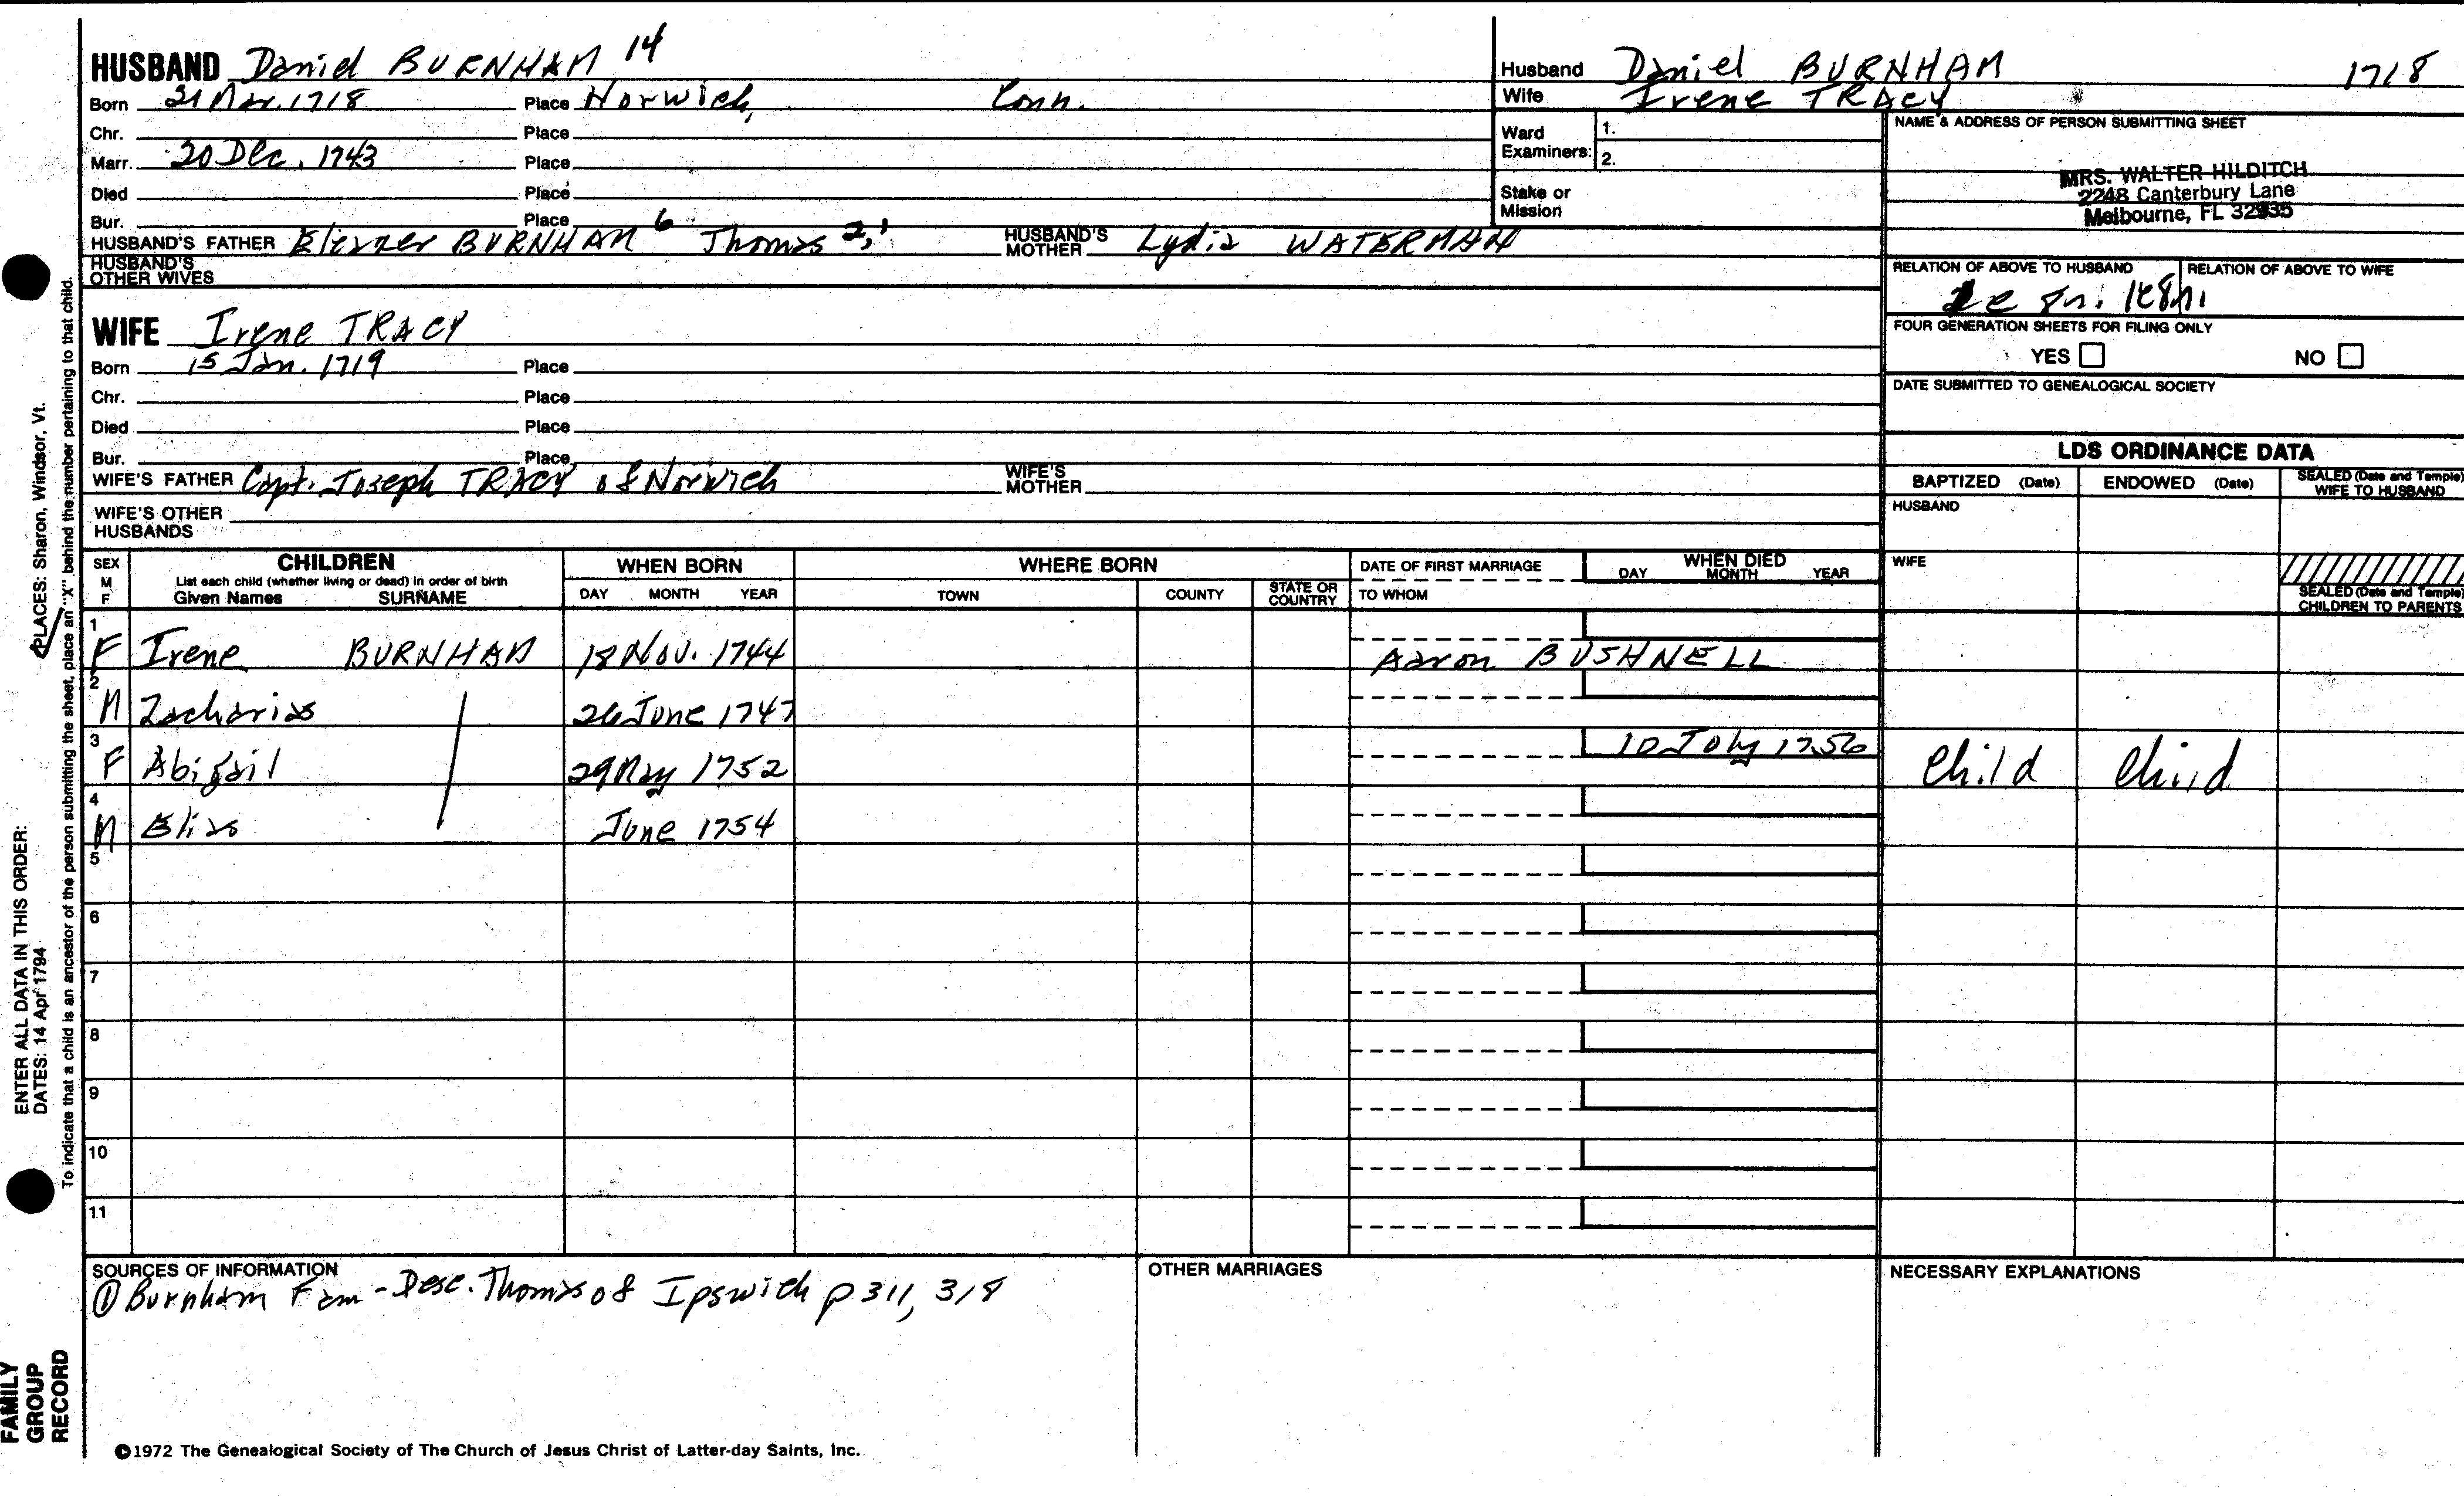 HUSBAND Daniel BURNHAM 14
Born 21 Mar. 1718 Place Norwich, Conn.
Chr. Place
Marr. 20 Dec. 1743 Place
Died Place
Bur. Place
HUSBAND'S FATHER Eleazer BURNHAM 6 Thomas 2,1 HUSBAND'S MOTHER Lydia WATERMAN
HUSBAND'S OTHER WIVES
WIFE Irene TRACY
Born 15 Jan. 1719 Place
Chr. Place
Died Place
Bur. Place
WIFE'S FATHER Capt. Joseph TRACY of Norwich WIFE'S MOTHER
WIFE'S OTHER HUSBANDS
Husband Daniel BURNHAM 1718
Wife Irene TRACY
Ward Examiners: 1.
2.
Stake or Mission
NAME & ADDRESS OF PERSON SUBMITTING SHEET
MRS. WALTER HILDITCH
2248 Canterbury Lane
Melbourne, FL 32935
RELATION OF ABOVE TO HUSBAND RELATION OF ABOVE TO WIFE
FOUR GENERATION SHEETS FOR FILING ONLY
YES NO
DATE SUBMITTED TO GENEALOGICAL SOCIETY
LDS ORDINANCE DATA
BAPTIZED (Date) ENDOWED (Date) SEALED (Date and Temple) WIFE TO HUSBAND
HUSBAND
WIFE
SEALED (Date and Temple) CHILDREN TO PARENTS
SEX M F CHILDREN WHEN BORN WHERE BORN DATE OF FIRST MARRIAGE WHEN DIED
List each child (whether living or dead) in order of birth
Given Names SURNAME DAY MONTH YEAR TOWN COUNTY STATE OR COUNTRY TO WHOM DAY MONTH YEAR
1 F Irene BURNHAM 18 Nov. 1744 Aaron BUSHNELL
2 M Zacharias 26 June 1747
3 F Abigail 29 May 1752 10 July 1756 Child Child
4 M Elias June 1754
5
6
7
8
9
10
11
SOURCES OF INFORMATION
① Burnham Fam - Desc. Thomas of Ipswich p 311, 318
OTHER MARRIAGES
NECESSARY EXPLANATIONS
©1972 The Genealogical Society of The Church of Jesus Christ of Latter-day Saints, Inc.
FAMILY GROUP RECORD
ENTER ALL DATA IN THIS ORDER:
DATES: 14 Apr 1794
PLACES: Sharon, Windsor, Vt.
To indicate that a child is an ancestor of the person submitting the sheet, place an "X" behind the number pertaining to that child.